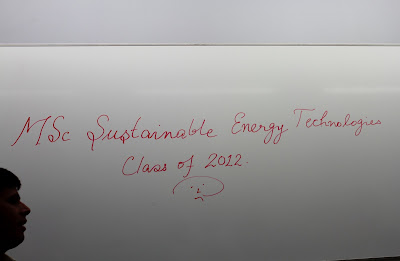 MSc Sustainable Energy Technologies
Class of 2022.